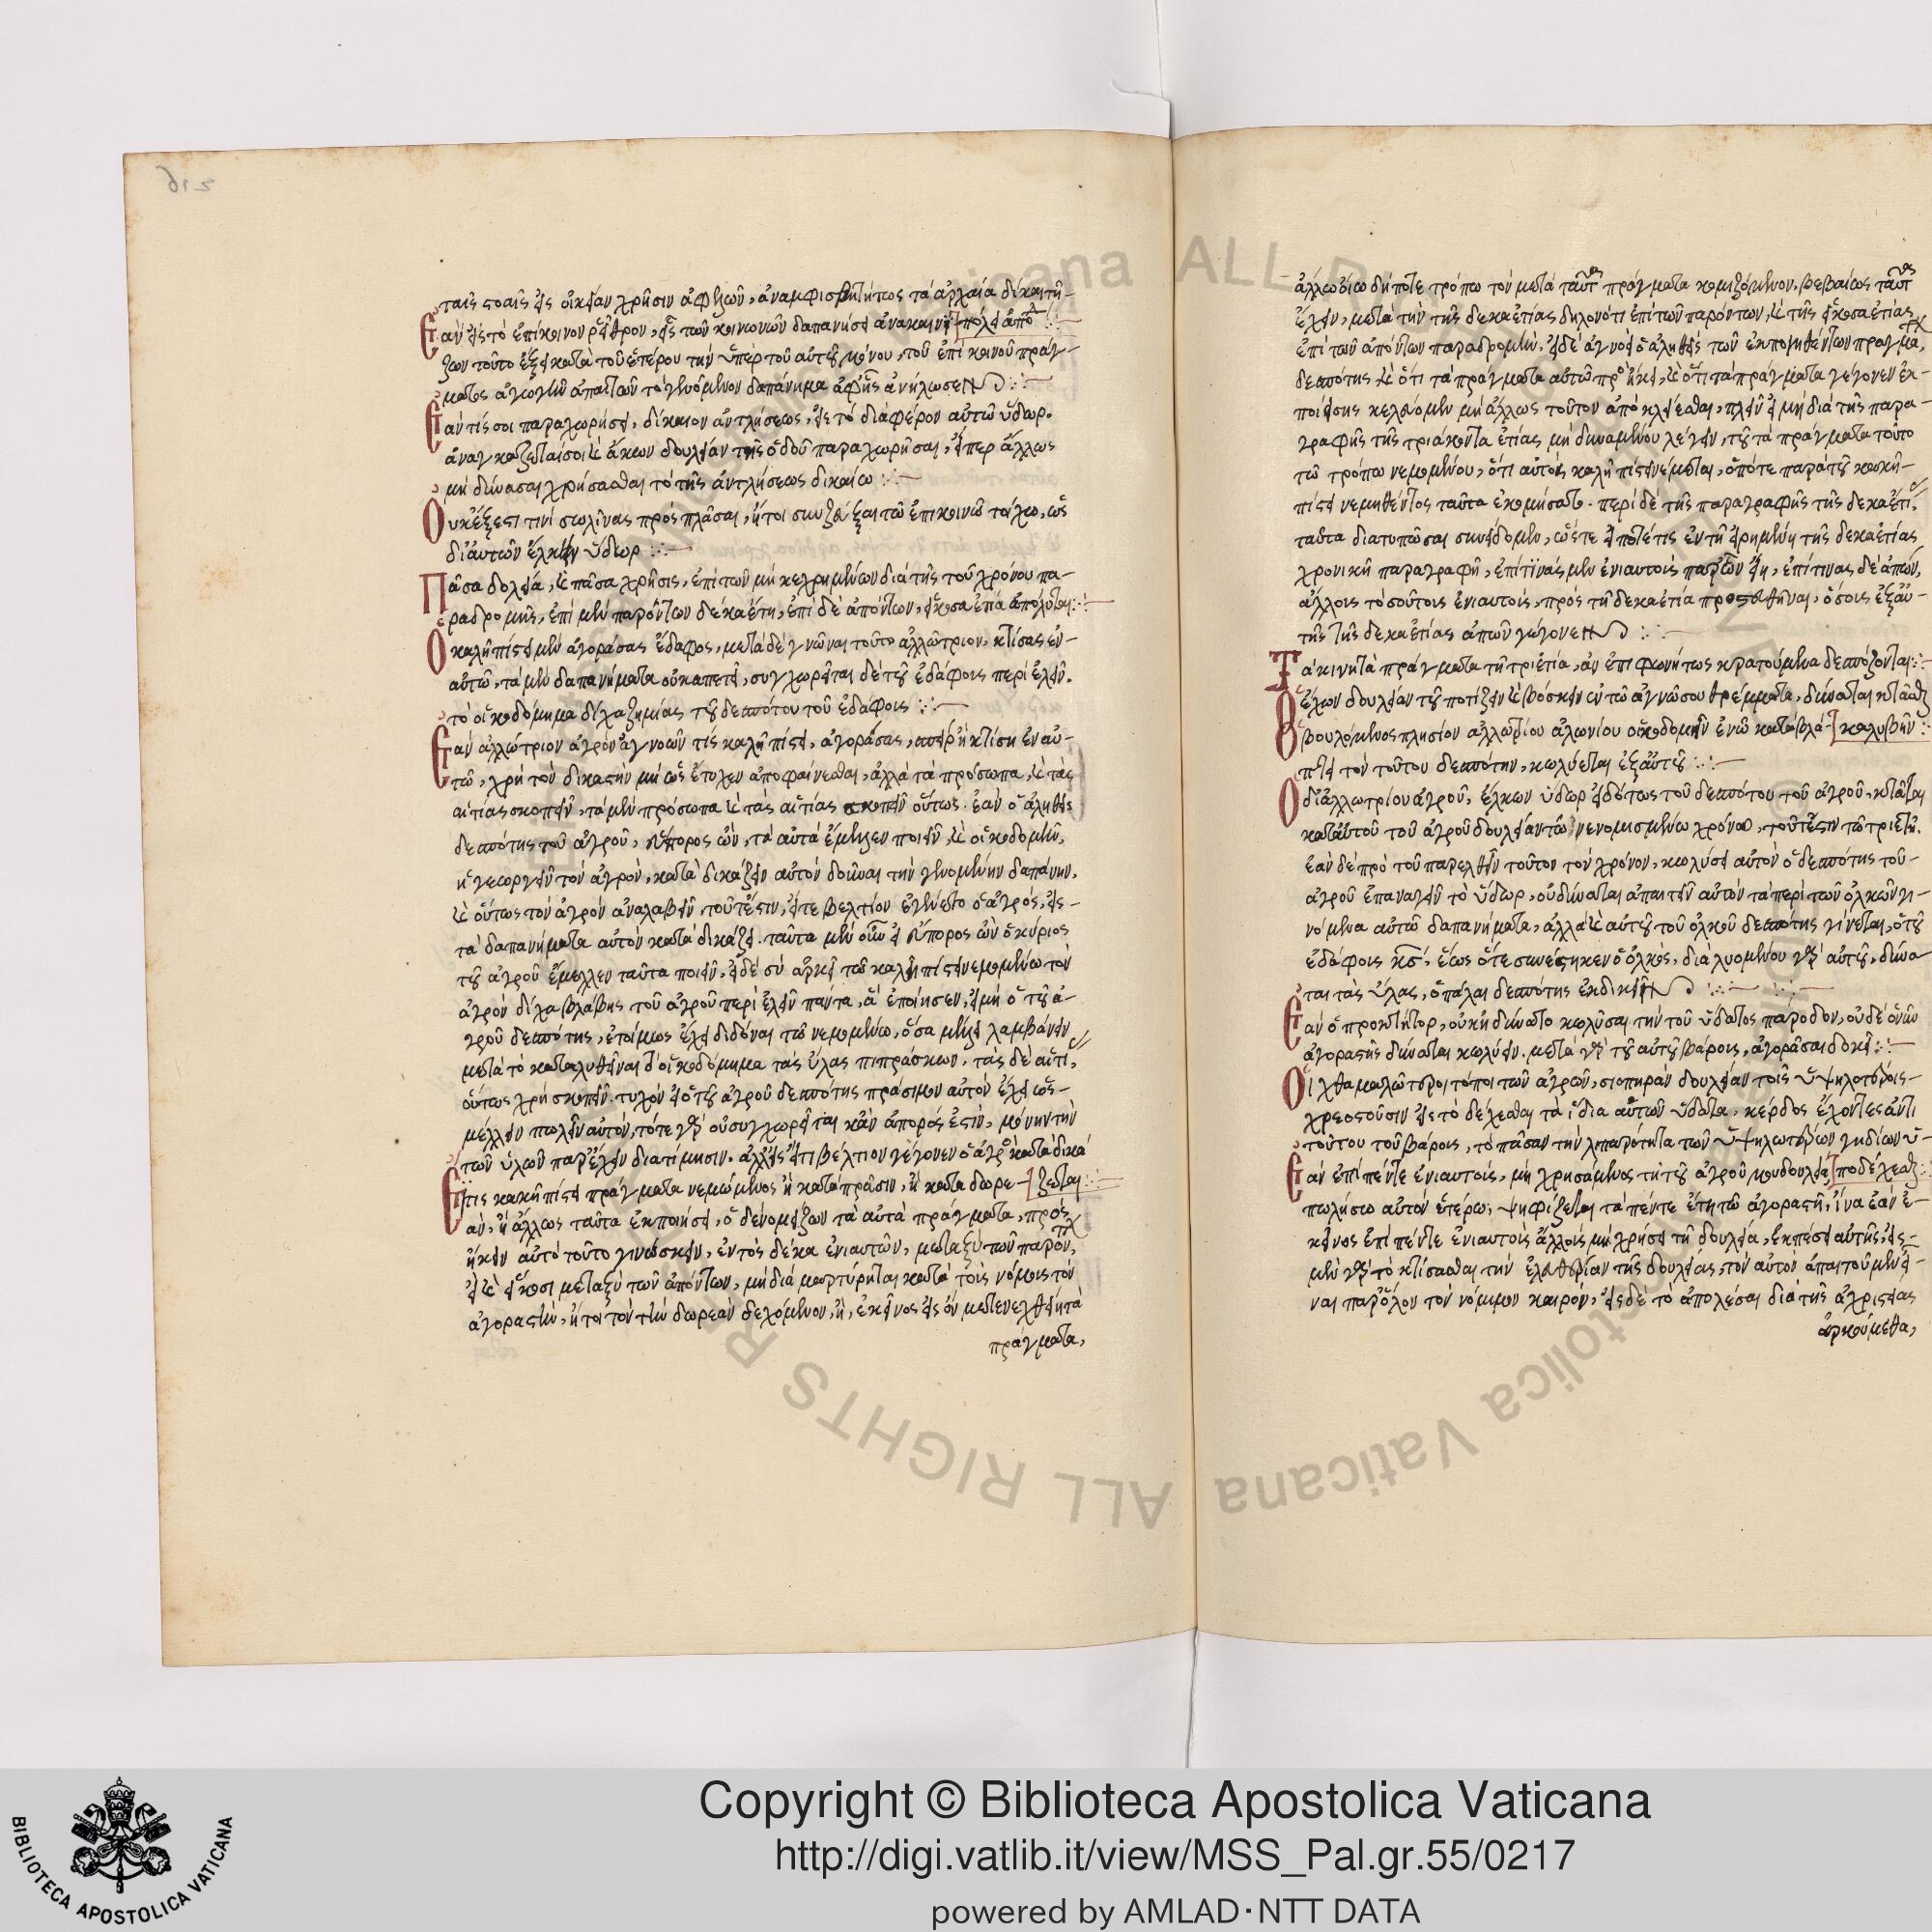 ταῖς στοαῖς εἰς οἰκείαν χρῆσιν ἀφελὼν, ἀναμφισβητήτως τὰ ἀρχαῖα δίκαια τῆ-
Ἐὰν εἰς τὸ ἐπίκοινον ῥεῖθρον, εἷς τῶν κοινωνῶν δαπανήσει ἀνακαινί- πόλει ἀπο
ζων τοῦτο ἕξει κατὰ τοῦ ἑτέρου τὴν ὑπὲρ τοῦ αὐτοῦ μόνου, τοῦ ἐπὶ κοινοῦ πράγ-
ματος ἀγωγὴν ἀπαιτῶν τὸ γενόμενον δαπάνημα ἀφ' ἧς ἀνήλωσεν
Ἐάν τίς σοι παραχωρήσει, δίκαιον ἀντλήσεως, εἰς τὸ διαφέρον αὐτῶ ὕδωρ.
ἀναγκάζεταί σοι καὶ ἄκων δουλείαν τῆς ὁδοῦ παραχωρῆσαι, εἴπερ ἄλλως
μὴ δύνασαι χρήσασθαι τὸ τῆς ἀντλήσεως δικαίω
Οὐκ ἔξεστι τινὶ σωλῆνας προσπλάσαι, ἤτοι συζεῦξαι τῶ ἐπικοίνω τοίχω, ὡς
δι' αὐτῶν ἕλκειν ὕδωρ
Πᾶσα δουλεία, καὶ πᾶσα χρῆσις, ἐπὶ τῶν μὴ κεχρημένων διὰ τῆς τοῦ χρόνου πα-
ραδρομῆς, ἐπὶ μὲν παρόντων δέκα ἔτη, ἐπὶ δὲ ἀπόντων, εἴκοσα ἐτία ἀπόλυται
Ὁ καλῆ πίστει μὲν ἀγοράσας ἔδαφος, μετὰ δὲ γνῶναι τοῦτο ἀλλότριον, κτίσας ἐν
αὐτῶ, τὰ μὲν δαπανήματα οὐκ ἀπαιτεῖ, συγχωρεῖται δὲ τοῦ ἐδάφους περιελεῖν.
τὸ οἰκοδόμημα δίχα ζημίας τοῦ δεσπότου τοῦ ἐδάφους
Ἐὰν ἀλλότριον ἀγρὸν ἀγνοῶν τὶς καλῆ πίστει, ἀγοράσας, σπείρη ἢ κτίση ἐν αὐ-
τῶ, χρὴ τὸν δικαστὴν μὴ ὡς ἔτυχεν ἀποφαίνεσθαι, ἀλλὰ τὰ πρόσωπα, καὶ τὰς
αἰτίας σκοπεῖν, τὰ μὲν πρόσωπα καὶ τὰς αἰτίας σκοπεῖν οὕτως. ἐὰν ὁ ἀληθὴς
δεσπότης τοῦ ἀγροῦ, εὔπορος ὢν, τὰ αὐτὰ ἔμελλεν ποιεῖν, καὶ οἰκοδομεῖν,
ἢ γεωργεῖν τὸν ἀγρὸν, καταδικάζειν αὐτὸν δοῦναι τὴν γενομένην δαπάνην,
καὶ οὕτως τὸν ἀγρὸν ἀναλαβεῖν, τουτέστιν, εἴτε βελτίον ἐγένετο ὁ ἀγρός, εἰς
τὰ δαπανήματα αὐτὸν καταδικάζει. ταῦτα μὲν οὖν εἰ εὔπορος ὢν ὁ κύριος
τοῦ ἀγροῦ ἔμελλεν ταῦτα ποιεῖν, εἰ δὲ σὺ ἀρκεῖ τῶ καλῆ πίστει νεμομένω τὸν
ἀγρὸν δίχα βλάβης τοῦ ἀγροῦ περιελεῖν πάντα, ἃ ἐποίησεν, εἰ μὴ ὁ τοῦ ἀ-
γροῦ δεσπότης, ἑτοίμως ἔχει διδόναι τῶ νεμομένω, ὅσα μέλλει λαμβάνειν
μετὰ τὸ καταλυθῆναι τὸ οἰκοδόμημα τὰς ὕλας πιπράσκων, τὰς δὲ αἰτί
οὕτως χρὴ σκοπεῖν. τυχὸν εἰ ὁ τοῦ ἀγροῦ δεσπότης πράσιμον αὐτὸν ἔχει ὡς
μέλλειν πωλεῖν αὐτὸν, τότε γὰρ οὐ συγχωρεῖται κἂν ἄπορός ἐστιν, μόνην τὴν
τῶν ὑλῶν παρέχειν διατίμησιν. ἀλλ' εἰς ὅτι βέλτιον γέγονεν ὁ ἀγρὸς καταδικά
Εἴ τις κακῆ πίστει πράγματα νεμόμενος ἢ κατὰ πρᾶσιν, ἢ κατὰ δωρε- ζεται
ὰν, ἢ ἄλλως ταῦτα ἐκποιήσει, ὁ δὲ νομίζων τὰ αὐτὰ πράγματα, προσ
ήκειν αὐτὸ τοῦτο γινώσκειν, ἐντὸς δέκα ἐνιαυτῶν, μεταξὺ τῶν παρόν,
εἰ καὶ εἴκοσι μεταξὺ τῶν ἀπόντων, μὴ διαμαρτύρηται κατὰ τοὺς νόμους τὸν
ἀγοραστὴν, ἤτοι τὸν τὴν δωρεὰν δεχόμενον, ἢ, ἐκεῖνος εἰς ὃν μετενελθείη τὰ
πράγματα,
ἀλλωοίω δήποτε τρόπω τὸν μετὰ ταῦτα πράγματα κομιζόμενον, βεβαίως ταῦτα
ἔχειν, μετὰ τὴν τῆς δεκαετίας δηλονότι ἐπὶ τῶν παρόντων, καὶ τῆς εἰκοσαετίας
ἐπὶ τῶν ἀπόντων παραδρομὴν. εἰ δὲ ἀγνοεῖ ὁ ἀληθὴς τῶν ἐκποιηθέντων πραγμά,
δεσπότης καὶ ὅτι τὰ πράγματα αὐτῶ προσήκει, καὶ ὅτι τὰ πράγματα γέγονεν ἐκ-
ποιήσης κελεύομεν μὴ ἄλλως τοῦτον ἀποκλείεσθαι, πλὴν εἰ μὴ διὰ τῆς παρα-
γραφῆς τῆς τριακονταετίας, μὴ δυναμένου λέγειν, τοῦ τὰ πράγματα τοῦτο
τῶ τρόπω νεμομένου, ὅτι αὐτὸς καλῆ πίστει νέμεται, ὁπότε παρὰ τοῦ κακῆ-
πίστει νεμηθέντος ταῦτα ἐκομίσατο. περὶ δὲ τῆς παραγραφῆς τῆς δεκαετί,
ταῦτα διατυπῶσαι συνείδομεν, ὥστε εἴ ποτέ τις ἐν τῆ εἰρημένη τῆς δεκαετίας
χρονικῆ παραγραφῆ, ἐπί τινας μὲν ἐνιαυτοὺς παρὼν εἴη, ἐπί τινας δὲ ἀπὼν,
ἄλλους τοσούτους ἐνιαυτοὺς, πρὸς τῆ δεκαετία προστεθῆναι, ὅσους ἐξ αὐ-
τῆς τῆς δεκαετίας ἀπὼν γέγονεν
Τὰ κινητὰ πράγματα τῆ τριετία, ἀνεπιφωνήτως κρατούμενα δεσπόζονται
Ὁ ἔχων δουλείαν τοῦ ποτίζειν καὶ βόσκειν ἐν τῶ ἀγρῶ σου θρέμματα, δύναται κτᾶσθαι
Ὁ βουλόμενος πλησίον ἀλλοτρίου ἁλωνίου οἰκοδομεῖν ἐν ὧ καταβλά- καλυβὴν
πτει τὸν τούτου δεσπότην, κωλύεται ἐξ αὐτοῦ
Ὁ δι' ἀλλοτρίου ἀγροῦ, ἕλκων ὕδωρ εἰδότως τοῦ δεσπότου τοῦ ἀγροῦ, κτᾶται
κατ' αὐτοῦ τοῦ ἀγροῦ δουλείαν τῶ νενομισμένω χρόνω, τουτέστιν τῶ τριετῆ.
ἐὰν δὲ πρὸ τοῦ παρελθεῖν τοῦτον τὸν χρόνον, κωλύσει αὐτὸν ὁ δεσπότης τοῦ
ἀγροῦ ἐπαναγεῖν τὸ ὕδωρ, οὐ δύναται ἀπαιτεῖν αὐτὸν τὰ περὶ τῶν ὁλκῶν γι-
νόμενα αὐτῶ δαπανήματα, ἀλλὰ καὶ αὐτοῦ τοῦ ὁλκοῦ δεσπότης γίνεται, ὁ τοῦ
ἐδάφους ἕως ὅτε συνέστηκεν ὁ ὁλκός, διαλυομένου γὰρ αὐτοῦ, δύνα
ται τὰς ὕλας, ὁ πάλαι δεσπότης ἐκδικεῖν
Ἐὰν ὁ προκτήτωρ, οὐκ ἠδύνατο κωλῦσαι τὴν τοῦ ὕδατος πάροδον, οὐδὲ ὁ νέος
ἀγοραστὴς δύναται κωλύειν. μετὰ γὰρ τοῦ αὐτοῦ βάρους, ἀγοράσαι δοκεῖ
Οἱ χθαμαλώτεροι τόποι τῶν ἀγρῶν, σιοπηρὰν δουλείαν τοῖς ὑψηλοτέροις
χρεοστοῦσιν εἰς τὸ δέχεσθαι τὰ ἴδια αὐτῶν ὕδατα, κέρδος ἔχοντες ἀντὶ
τούτου τοῦ βάρους, τὸ πᾶσαν τὴν λιπαρότητα τῶν ὑψηλωτέρων γηδίων ὑ-
Ἐὰν ἐπὶ πέντε ἐνιαυτοὺς, μὴ χρησάμενος τῆ τοῦ ἀγροῦ μου δουλεία, ποδέχεσθαι
πωλήσω αὐτὸν ἑτέρω, ψηφίζεται τὰ πέντε ἔτη τῶ ἀγοραστῆ, ἵνα ἐὰν ἐ-
κεῖνος ἐπὶ πέντε ἐνιαυτοὺς ἄλλους μὴ χρήσει τῆ δουλεία, ἐκπέσει αὐτῆς, εἰς
μὲν γὰρ τὸ κτίσασθαι τὴν ἐλευθερίαν τῆς δουλείας, τὸν αὐτὸν ἀπαιτοῦμεν εἶ-
ναι παρ' ὅλον τὸν νόμιμον καιρὸν, εἰς δὲ τὸ ἀπολέσαι διὰ τῆς ἀχρηστείας
ἀρκούμεθα,
Copyright © Biblioteca Apostolica Vaticana
http://digi.vatlib.it/view/MSS_Pal.gr.55/0217
powered by AMLAD·NTT DATA
BIBLIOTECA APOSTOLICA VATICANA